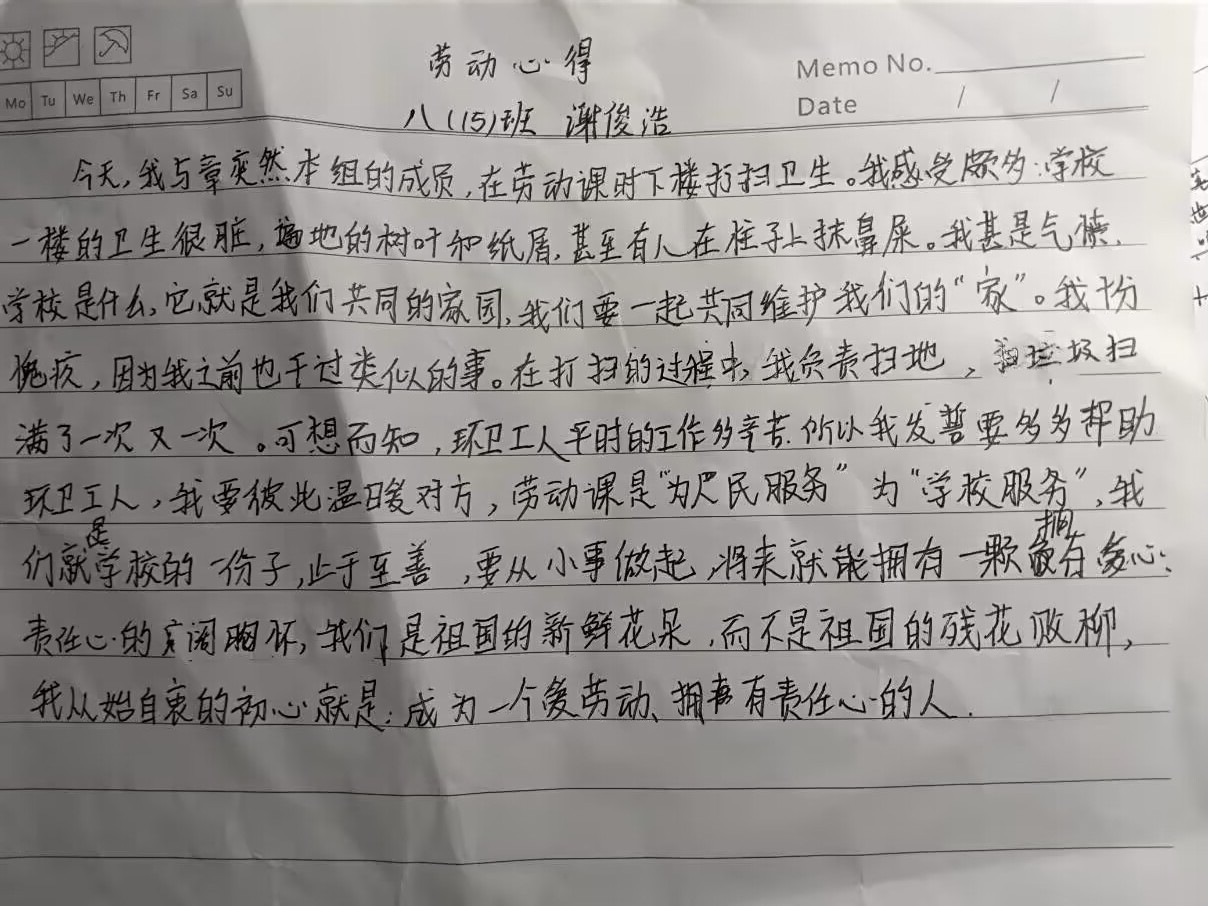 劳动心得
Memo No.
Mo Tu We Th Fr Sa Su
Date / /
八(15)班 谢俊浩
今天,我与章奕然本组的成员,在劳动课时下楼打扫卫生。我感受颇多:学校
一楼的卫生很脏,遍地的树叶和纸屑,甚至有人在柱子上抹鼻屎。我甚是气愤,
学校是什么,它就是我们共同的家园,我们要一起共同维护我们的“家”。我十份
愧疚,因为我之前也干过类似的事。在打扫的过程中,我负责扫地,垃圾扫
满了一次又一次。可想而知,环卫工人平时的工作多辛苦.所以我发誓要多多帮助
环卫工人,我要彼此温暖对方,劳动课是“为人民服务”为“学校服务”,我
们就是学校的一份子,止于至善,要从小事做起,将来就能拥有一颗拥有爱心、
责任心的宽阔胸怀,我们是祖国的新鲜花朵,而不是祖国的残花败柳,
我从始自衷的初心就是:成为一个爱劳动、拥有责任心的人.